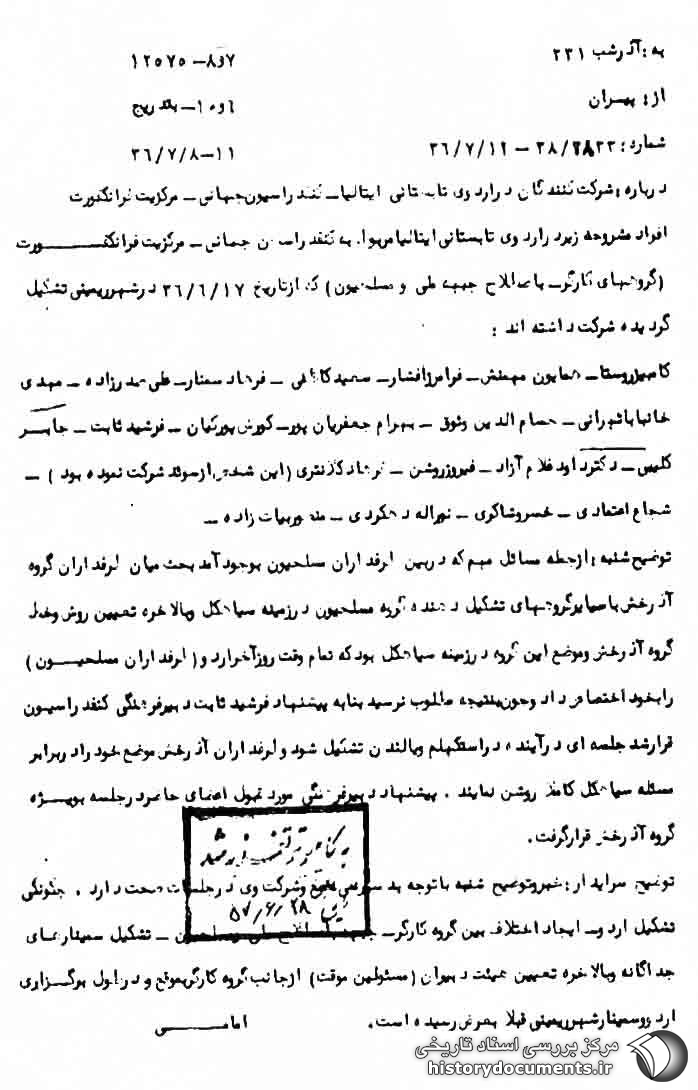 به: آذرشب ۲۳۱
۷و۸ــ ۱۲۵۷۵
از: پیسران
۶و۱۰ــ بتدریج
شماره: ۳۸/۲۸۳۳ ــ ۳۶/۷/۱۲
۱۱ــ ۳۶/۷/۸
درباره: شرکت‌کنندگان در اردوی تابستانی ایتالیا ــ کنفدراسیون جهانی ــ مرکزیت فرانکفورت
افراد مشروحه زیر در اردوی تابستانی ایتالیا مربوط به کنفدراسیون جهانی ــ مرکزیت فرانکفــورت
(گروههای کارگر ــ باصطلاح جبهه ملی و مسلحیون) که از تاریخ ۳۶/۶/۱۷ در شهر ریمینی تشکیل
گردیده شرکت داشته اند:
کامبیز روستا ــ همایون مهمنش ــ فرامرز افشار ــ سعید کاظمی ــ فرهاد سمنار ــ علی صدرزاده ــ مهدی
خانبابا تهرانی ــ حسام الدین وثوق ــ بهرام جعفریان پور ــ کورش پورکیان ــ فرشید ثابت ــ جابــر
کلیبی ــ دکتر داود غلام آزاد ــ فیروز روشن ــ فرهاد کلانتری (این شخص از سوئد شرکت نموده بود) ــ
شجاع اعتمادی ــ خسرو شاکری ــ نوراله دهکردی ــ منصور بیات زاده ــ
توضیح شنبه: از جمله مسائل مهم که در بین طرفداران مسلحیون بوجود آمد بحث میان طرفداران گروه
آذرخش با سایر گروههای تشکیل دهنده گروه مسلحیون در زمینه سیاهکل و بالاخره تعیین روش وخط
گروه آذرخش وموضع این گروه در زمینه سیاهکل بود که تمام وقت روز آخر اردو (طرفداران مسلحیــون)
را بخود اختصاص داد وچون بنتیجه مطلوب نرسید بنا به پیشنهاد فرشید ثابت دبیر فرهنگی کنفدراسیون
قرار شد جلسه ای در آینده در استکهلم ویا لندن تشکیل شود و طرفداران آذرخش موضع خود را در برابر
مسئله سیاهکل کاملا روشن نمایند. پیشنهاد دبیر فرهنگی مورد قبول اعضای حاضر در جلسه بویــژه
گروه آذرخش قرار گرفت.
توضیح سرایدار: خبر وتوضیح شنبه با توجه به وشرکت وی در جلسات صحت دارد. چگونگی
۵۷/۶/۲۸
تشکیل اردو ــ ایجاد اختلاف بین گروه کارگر ــ ــ تشکیل سمینارهای
جداگانه وبالاخره تعیین هیئت دبیران (مسئولین موقت) از جانب گروه کارگر بموقع و در طول برگــزاری
اردو وسمینار شهر ریمینی قبلا بعرض رسیده است.
امامــی
مرکز بررسی اسناد تاریخی
historydocuments.ir